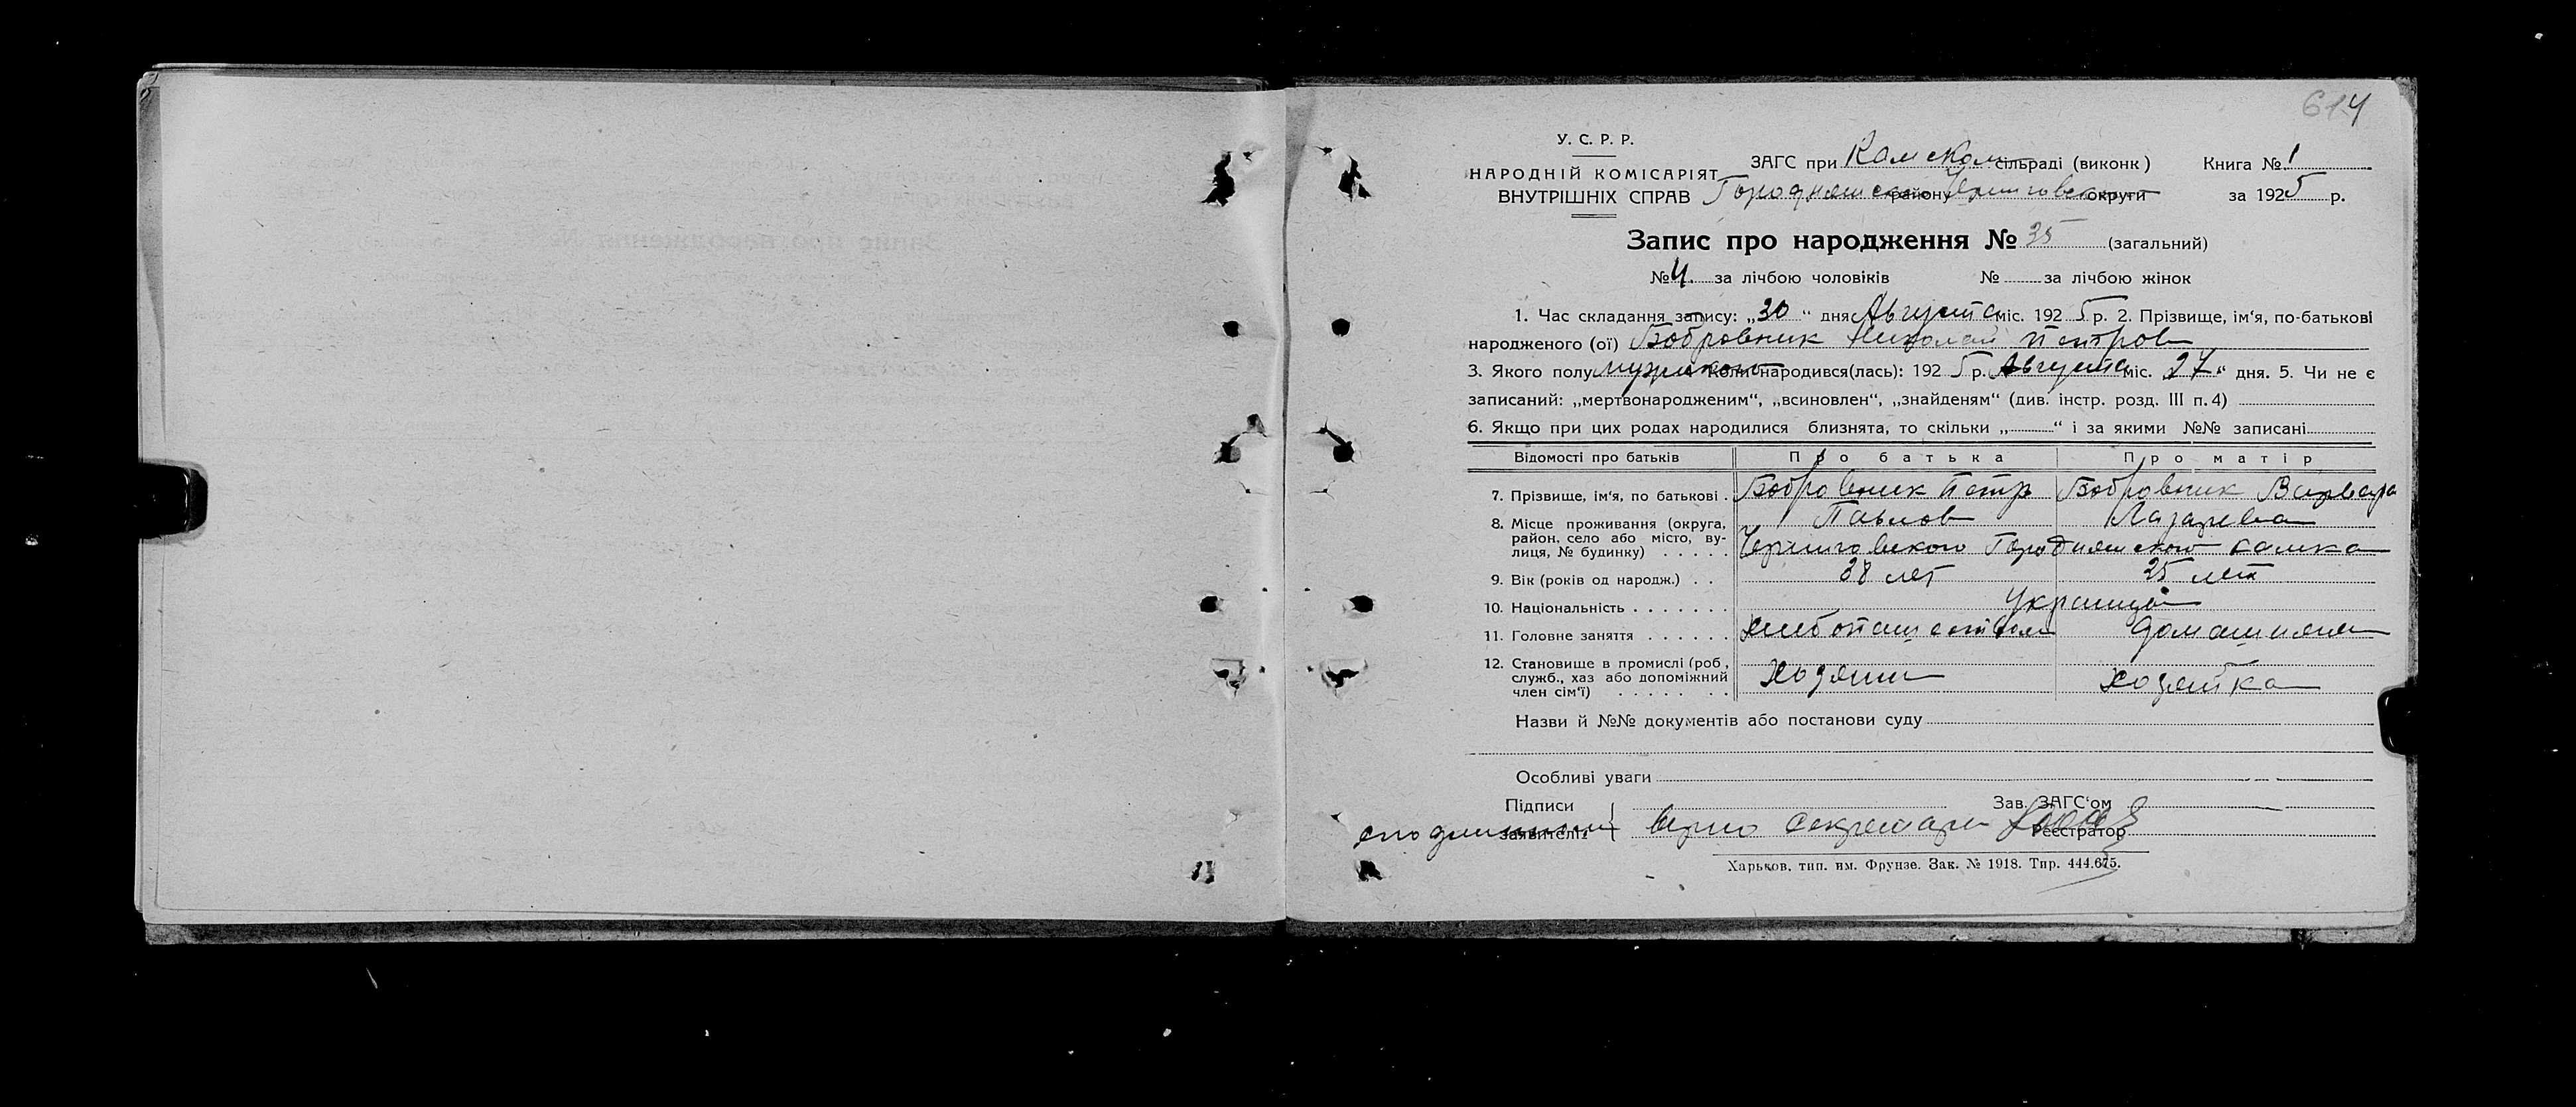 614
У. С. Р. Р.
НАРОДНІЙ КОМІСАРІЯТ
ВНУТРІШНІХ СПРАВ
ЗАГС при Камском сільраді (виконк)
Городнянского району Черниговской округи
Книга № 1
за 1925 р.
Запис про народження № 35 (загальний)
№ 4. за лічбою чоловіків № за лічбою жінок
1. Час складання запису: „30“ дня Августа міс. 1925 р. 2. Прізвище, ім'я, по-батькові
народженого (ої) Бобровник Николай Петров
3. Якого полу мужского Коли народився(лась): 1925 р. Августа міс. 27 “ дня. 5. Чи не є
записаний: „мертвонародженим“, „всиновлен“, „знайденям“ (див. інстр. розд. III п. 4)
6. Якщо при цих родах народилися близнята, то скільки „ “ і за якими №№ записані
Відомості про батьків Про батька Про матір
7. Прізвище, ім'я, по батькові . Бобровник Петр Бобровник Варвара
Павлов Лазарева
8. Місце проживання (округа,
район, село або місто, ву-
лиця, № будинку) . . . . . Черниговского Городнянского Камка
9. Вік (років од народж.) . . 38 лет 25 лет
10. Національність . . . . . . . Украинцы
11. Головне заняття . . . . . . Хлебопашеством домашняя
12. Становище в промислі (роб.,
служб., хаз або допоміжний
член сім'ї) . . . . . . . Хозяин хозяйка
Назви й №№ документів або постанови суду
Особливі уваги
Підписи
заявителів
Зав. ЗАГС'ом
верно секретарь
Реєстратор
Харьков, тип. им. Фрунзе. Зак. № 1918. Тир. 444.675.